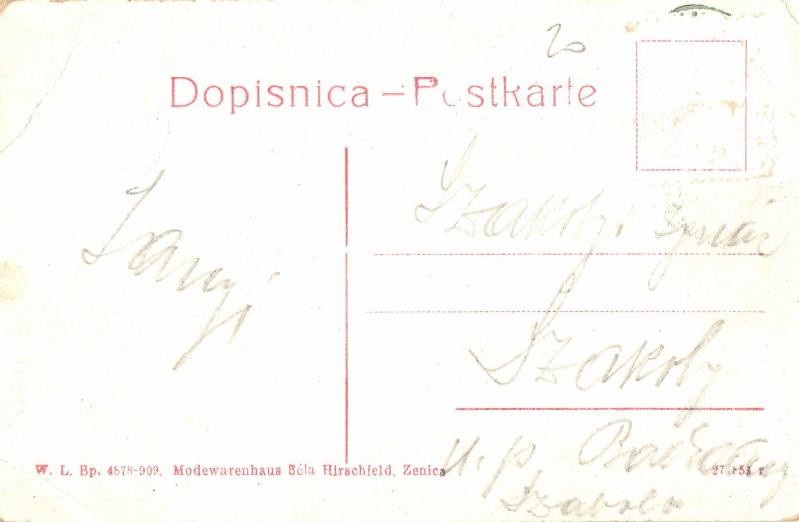 20
Dopisnica – Postkarte
Szakolyi Ignác
Szakoly
u. p. Balkány
Szabolcs
W. L. Bp. 4878-909, Modewarenhaus Béla Hirschfeld, Zenica